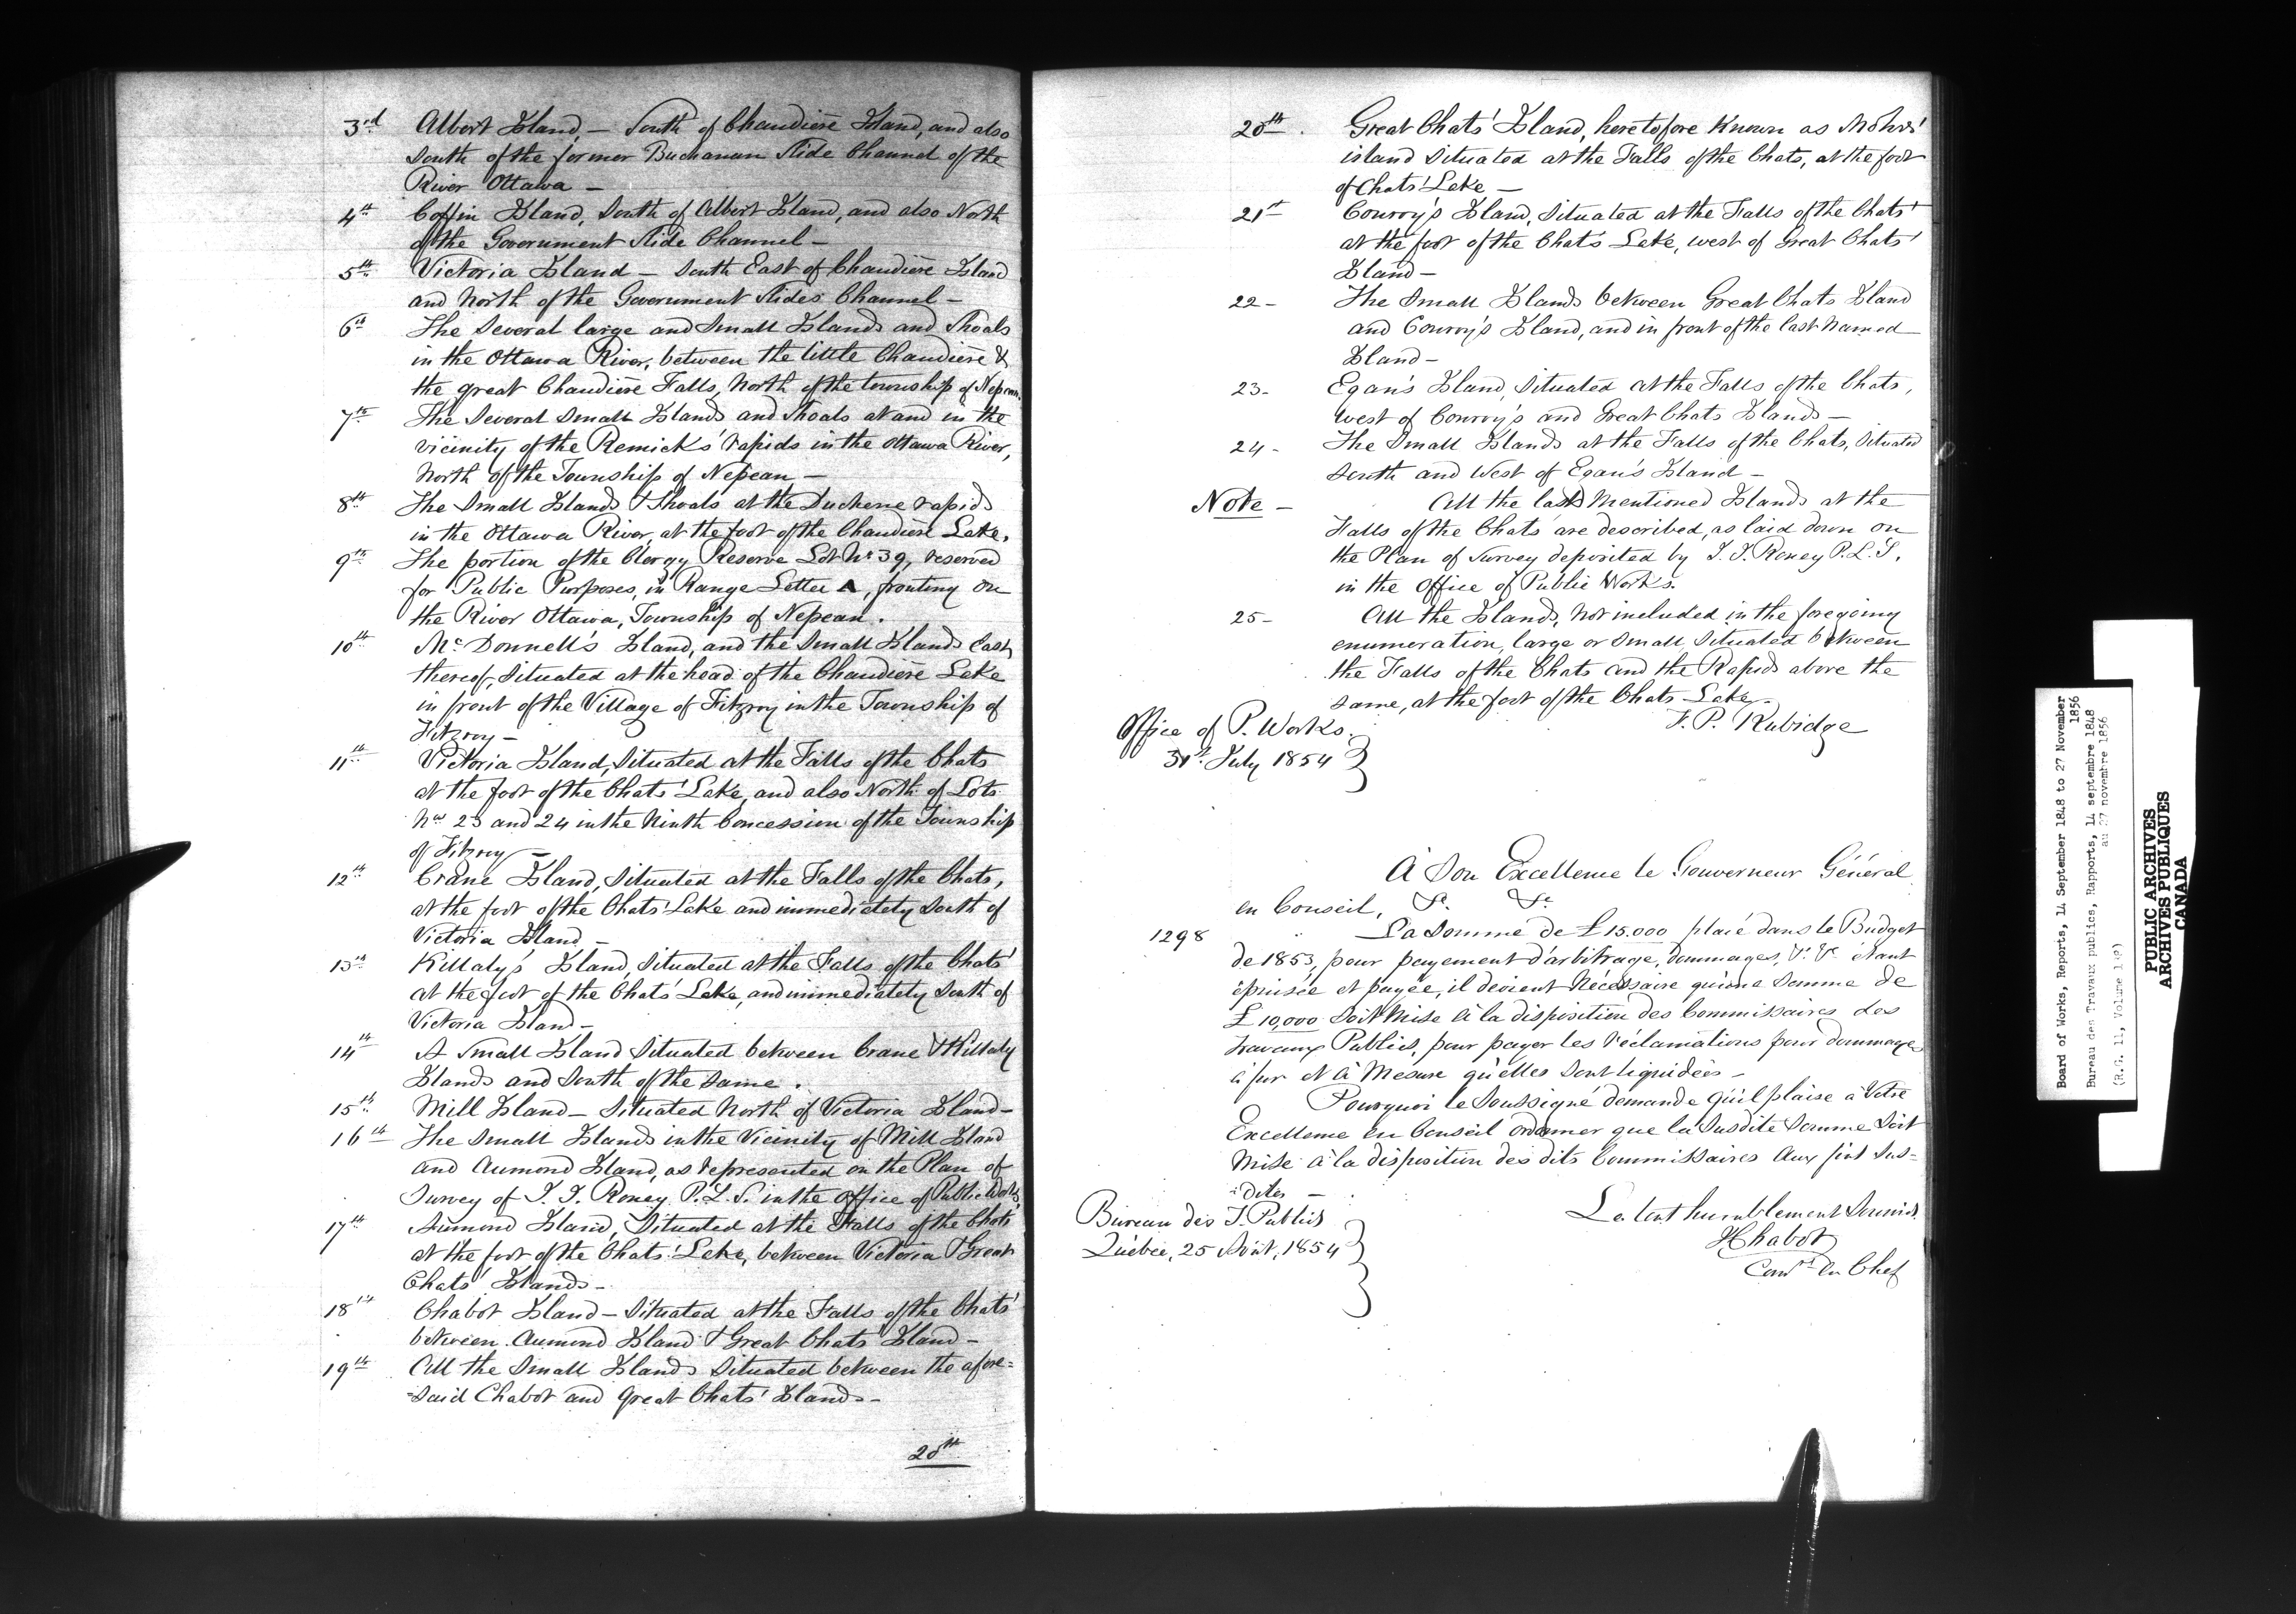 3rd Albert Island, — South of Chaudière Island, and also
South of the former Buchanan Slide Channel of the
River Ottawa —
4th Coffin Island, South of Albert Island, and also North
of the Government Slide Channel —
5th Victoria Island — South East of Chaudière Island
and North of the Government Slides Channel —
6th The Several large and Small Islands and Shoals
in the Ottawa River, between the little Chaudière &
the great Chaudière Falls, North of the township of Nepean.
7th The Several Small Islands and Shoals at and in the
vicinity of the Remick's rapids in the Ottawa River,
North of the Township of Nepean —
8th The Small Islands & Shoals at the Duchene rapids
in the Ottawa River, at the foot of the Chaudière Lake.
9th The portion of the Clergy Reserve Lot No 39, reserved
for Public Purposes, in Range Letter A, fronting on
the River Ottawa, Township of Nepean.
10th Mc Donnell's Island, and the Small Islands East
thereof, Situated at the head of the Chaudière Lake
in front of the Village of Fitzroy in the Township of
Fitzroy —
11th Victoria Island, Situated at the Falls of the Chats
at the foot of the Chats' Lake, and also North of Lots
Nos 23 and 24 in the Ninth Concession of the Township
of Fitzroy —
12th Crane Island, Situated at the Falls of the Chats,
at the foot of the Chats' Lake and immediately South of
Victoria Island —
13th Killaly's Island, Situated at the Falls of the Chats'
at the foot of the Chats' Lake, and immediately South of
Victoria Island —
14th A Small Island Situated between Crane & Killaly
Islands and South of the Same.
15th Mill Island — Situated North of Victoria Island —
16th The Small Islands in the Vicinity of Mill Island
and Aumond Island, as represented on the Plan of
Survey of J. J. Roney P.L.S. in the Office of Public Works
17th Aumond Island, Situated at the Falls of the Chats'
at the foot of the Chats' Lake, between Victoria & Great
Chats' Islands —
18th Chabot Island — Situated at the Falls of the Chats'
between Aumond Island & Great Chats' Island —
19th All the Small Islands Situated between the afore=
=said Chabot and Great Chats' Islands —
20th
20th. Great Chats' Island, heretofore Known as Mohrs'
island Situated at the Falls of the Chats, at the foot
of Chats' Lake —
21st Conroy's Island, Situated at the Falls of the Chats'
at the foot of the Chats Lake, west of Great Chats'
Island —
22 - The Small Islands between Great Chats Island
and Conroy's Island, and in front of the last Named
Island —
23 - Egan's Island, Situated at the Falls of the Chats,
West of Conroy's and Great Chats Islands —
24 - The Small Islands at the Falls of the Chats, Situated
South and West of Egan's Island —
Note — All the last Mentioned Islands at the
Falls of the Chats' are described, as laid down on
the Plan of Survey deposited by J. J. Roney P.L.S.
in the Office of Public Works.
25 - All the Islands, Not included in the foregoing
enumeration, large or Small, Situated between
the Falls of the Chats and the Rapids above the
Same, at the foot of the Chats Lake.
F. P. Rubidge
Office of P. Works.
31st July 1854
À Son Excellence le Gouverneur Général
en Conseil, &c. &c
1298 La Somme de £15.000 placé dans le Budget
de 1853, pour payement d'arbitrage, dommages, &c. &c étant
épuisée et payée, il devient Nécessaire qu'une Somme de
£10,000 Soit Mise à la disposition des Commissaires des
travaux Publics, pour payer les réclamations pour dommages
à fur et à Mesure qu'elles Sont liquidées —
Pourquoi le Soussigné demande qu'il plaise à Votre
Excellence en Conseil ordonner que la Susdite Somme Soit
Mise à la disposition des dits Commissaires Aux fins Sus=
=dites —
Le tout humblement Soumis.
Bureau des T. Publics
Québec, 25 Août, 1854
JChabot
Comre en Chef
Board of Works, Reports, 14 September 1848 to 27 November
1856
Bureau des Travaux publics, Rapports, 14 septembre 1848
au 27 novembre 1856
(R.G. 11, Volume
PUBLIC ARCHIVES
ARCHIVES PUBLIQUES
CANADA